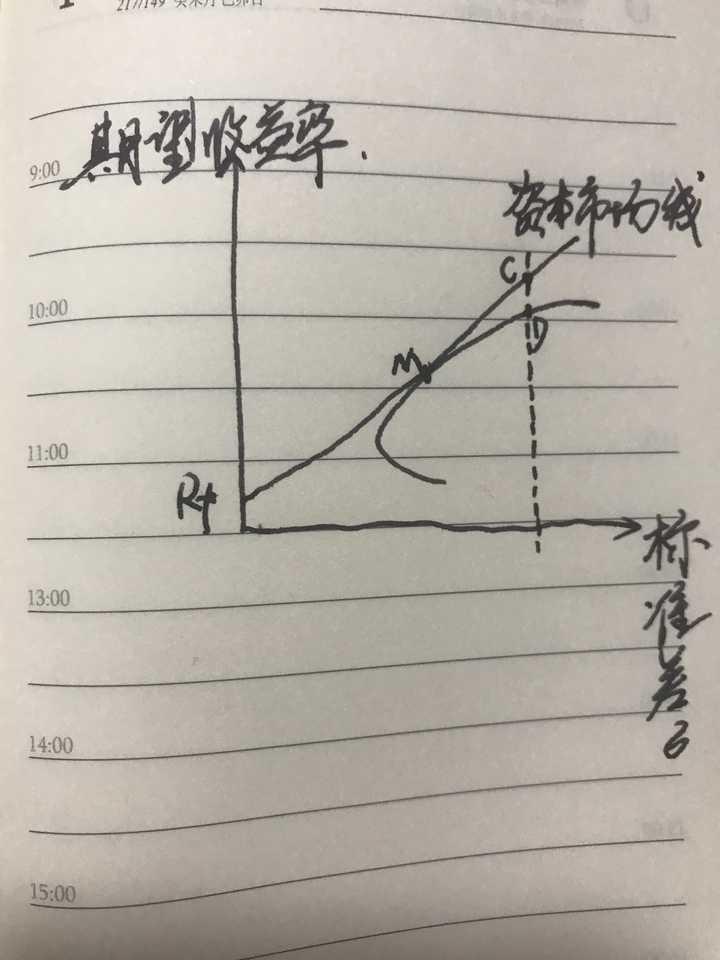 期望收益率.
9:00
资本市场线
C
10:00
D
M
11:00
Rf
标准差σ
13:00
14:00
15:00